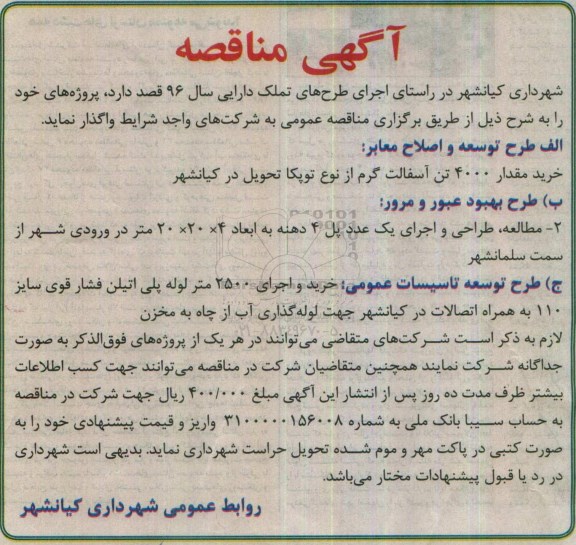 آگهی مناقصه
شهرداری کیانشهر در راستای اجرای طرح‌های تملک دارایی سال ۹۶ قصد دارد، پروژه‌های خود
را به شرح ذیل از طریق برگزاری مناقصه عمومی به شرکت‌های واجد شرایط واگذار نماید.
الف طرح توسعه و اصلاح معابر:
خرید مقدار ۴۰۰۰ تن آسفالت گرم از نوع توپکا تحویل در کیانشهر
ب) طرح بهبود عبور و مرور:
۲- مطالعه، طراحی و اجرای یک عدد پل ۴ دهنه به ابعاد ۴× ۲۰× ۲۰ متر در ورودی شهر از
سمت سلمانشهر
ج) طرح توسعه تاسیسات عمومی: خرید و اجرای ۲۵۰۰ متر لوله پلی اتیلن فشار قوی سایز
۱۱۰ به همراه اتصالات در کیانشهر جهت لوله‌گذاری آب از چاه به مخزن
لازم به ذکر است شرکت‌های متقاضی می‌توانند در هر یک از پروژه‌های فوق‌الذکر به صورت
جداگانه شرکت نمایند همچنین متقاضیان شرکت در مناقصه می‌توانند جهت کسب اطلاعات
بیشتر ظرف مدت ده روز پس از انتشار این آگهی مبلغ ۴۰۰/۰۰۰ ریال جهت شرکت در مناقصه
به حساب سیبا بانک ملی به شماره ۳۱۰۰۰۰۰۱۵۶۰۰۸ واریز و قیمت پیشنهادی خود را به
صورت کتبی در پاکت مهر و موم شده تحویل حراست شهرداری نماید. بدیهی است شهرداری
در رد یا قبول پیشنهادات مختار می‌باشد.
روابط عمومی شهرداری کیانشهر